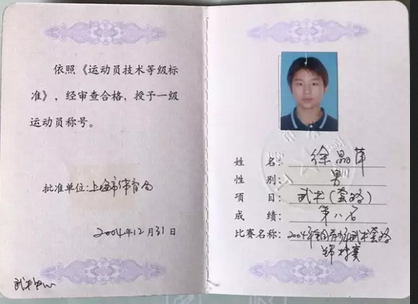 依照《运动员技术等级标
准》，经审查合格，授予一级
运动员称号。
批准单位:上海市体育局
2004年12月31日
武术中心
姓名: 徐晶萍
性别: 男
项目: 武术(套路)
成绩: 第八名
比赛名称: 2004年全国青少年武术套路
锦标赛